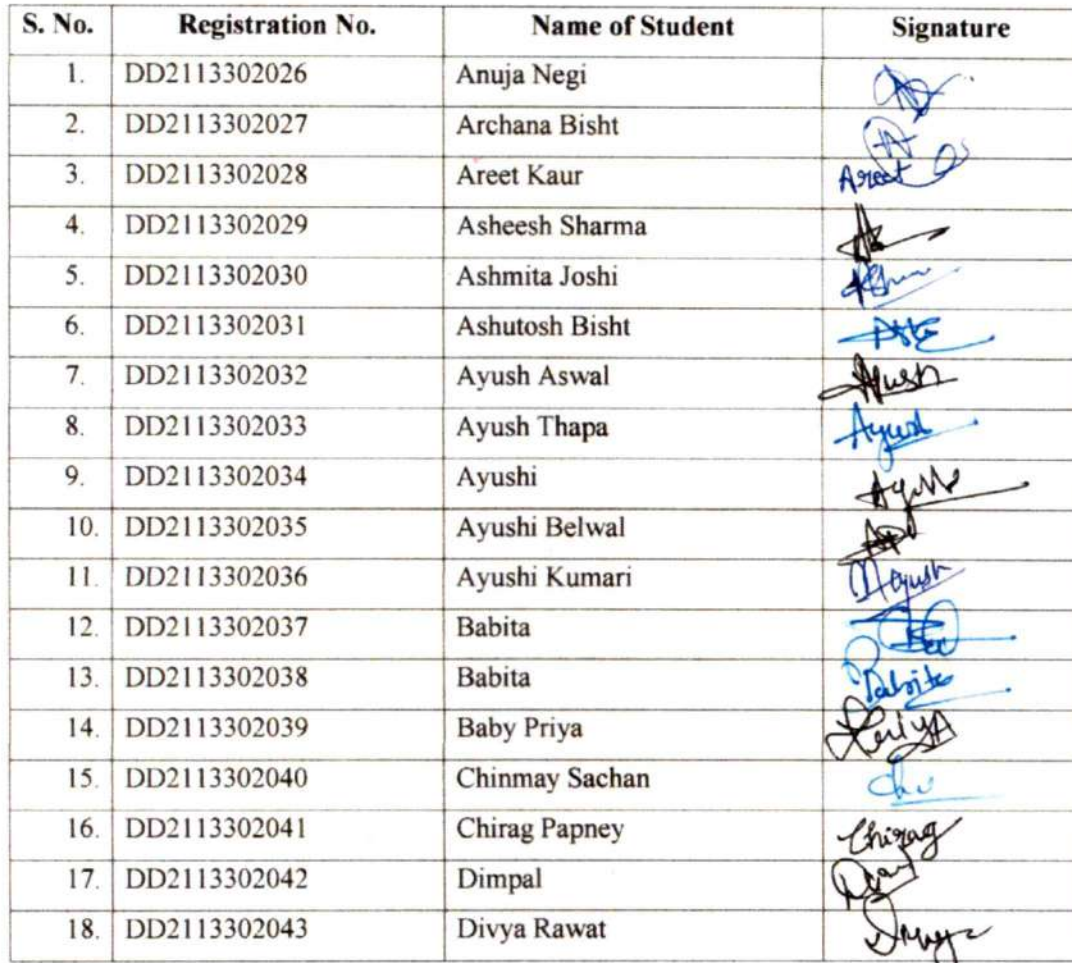 S. No. Registration No. Name of Student Signature
1. DD2113302026 Anuja Negi
2. DD2113302027 Archana Bisht
3. DD2113302028 Areet Kaur Areet
4. DD2113302029 Asheesh Sharma
5. DD2113302030 Ashmita Joshi
6. DD2113302031 Ashutosh Bisht
7. DD2113302032 Ayush Aswal Ayush
8. DD2113302033 Ayush Thapa Ayush
9. DD2113302034 Ayushi
10. DD2113302035 Ayushi Belwal
11. DD2113302036 Ayushi Kumari
12. DD2113302037 Babita
13. DD2113302038 Babita Babita
14. DD2113302039 Baby Priya
15. DD2113302040 Chinmay Sachan
16. DD2113302041 Chirag Papney Chirag
17. DD2113302042 Dimpal
18. DD2113302043 Divya Rawat